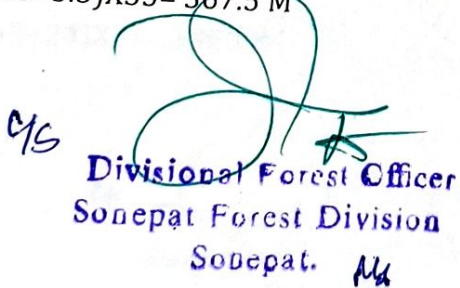 = 367.5 M
C/S
Divisional Forest Officer
Sonepat Forest Division
Sonepat.